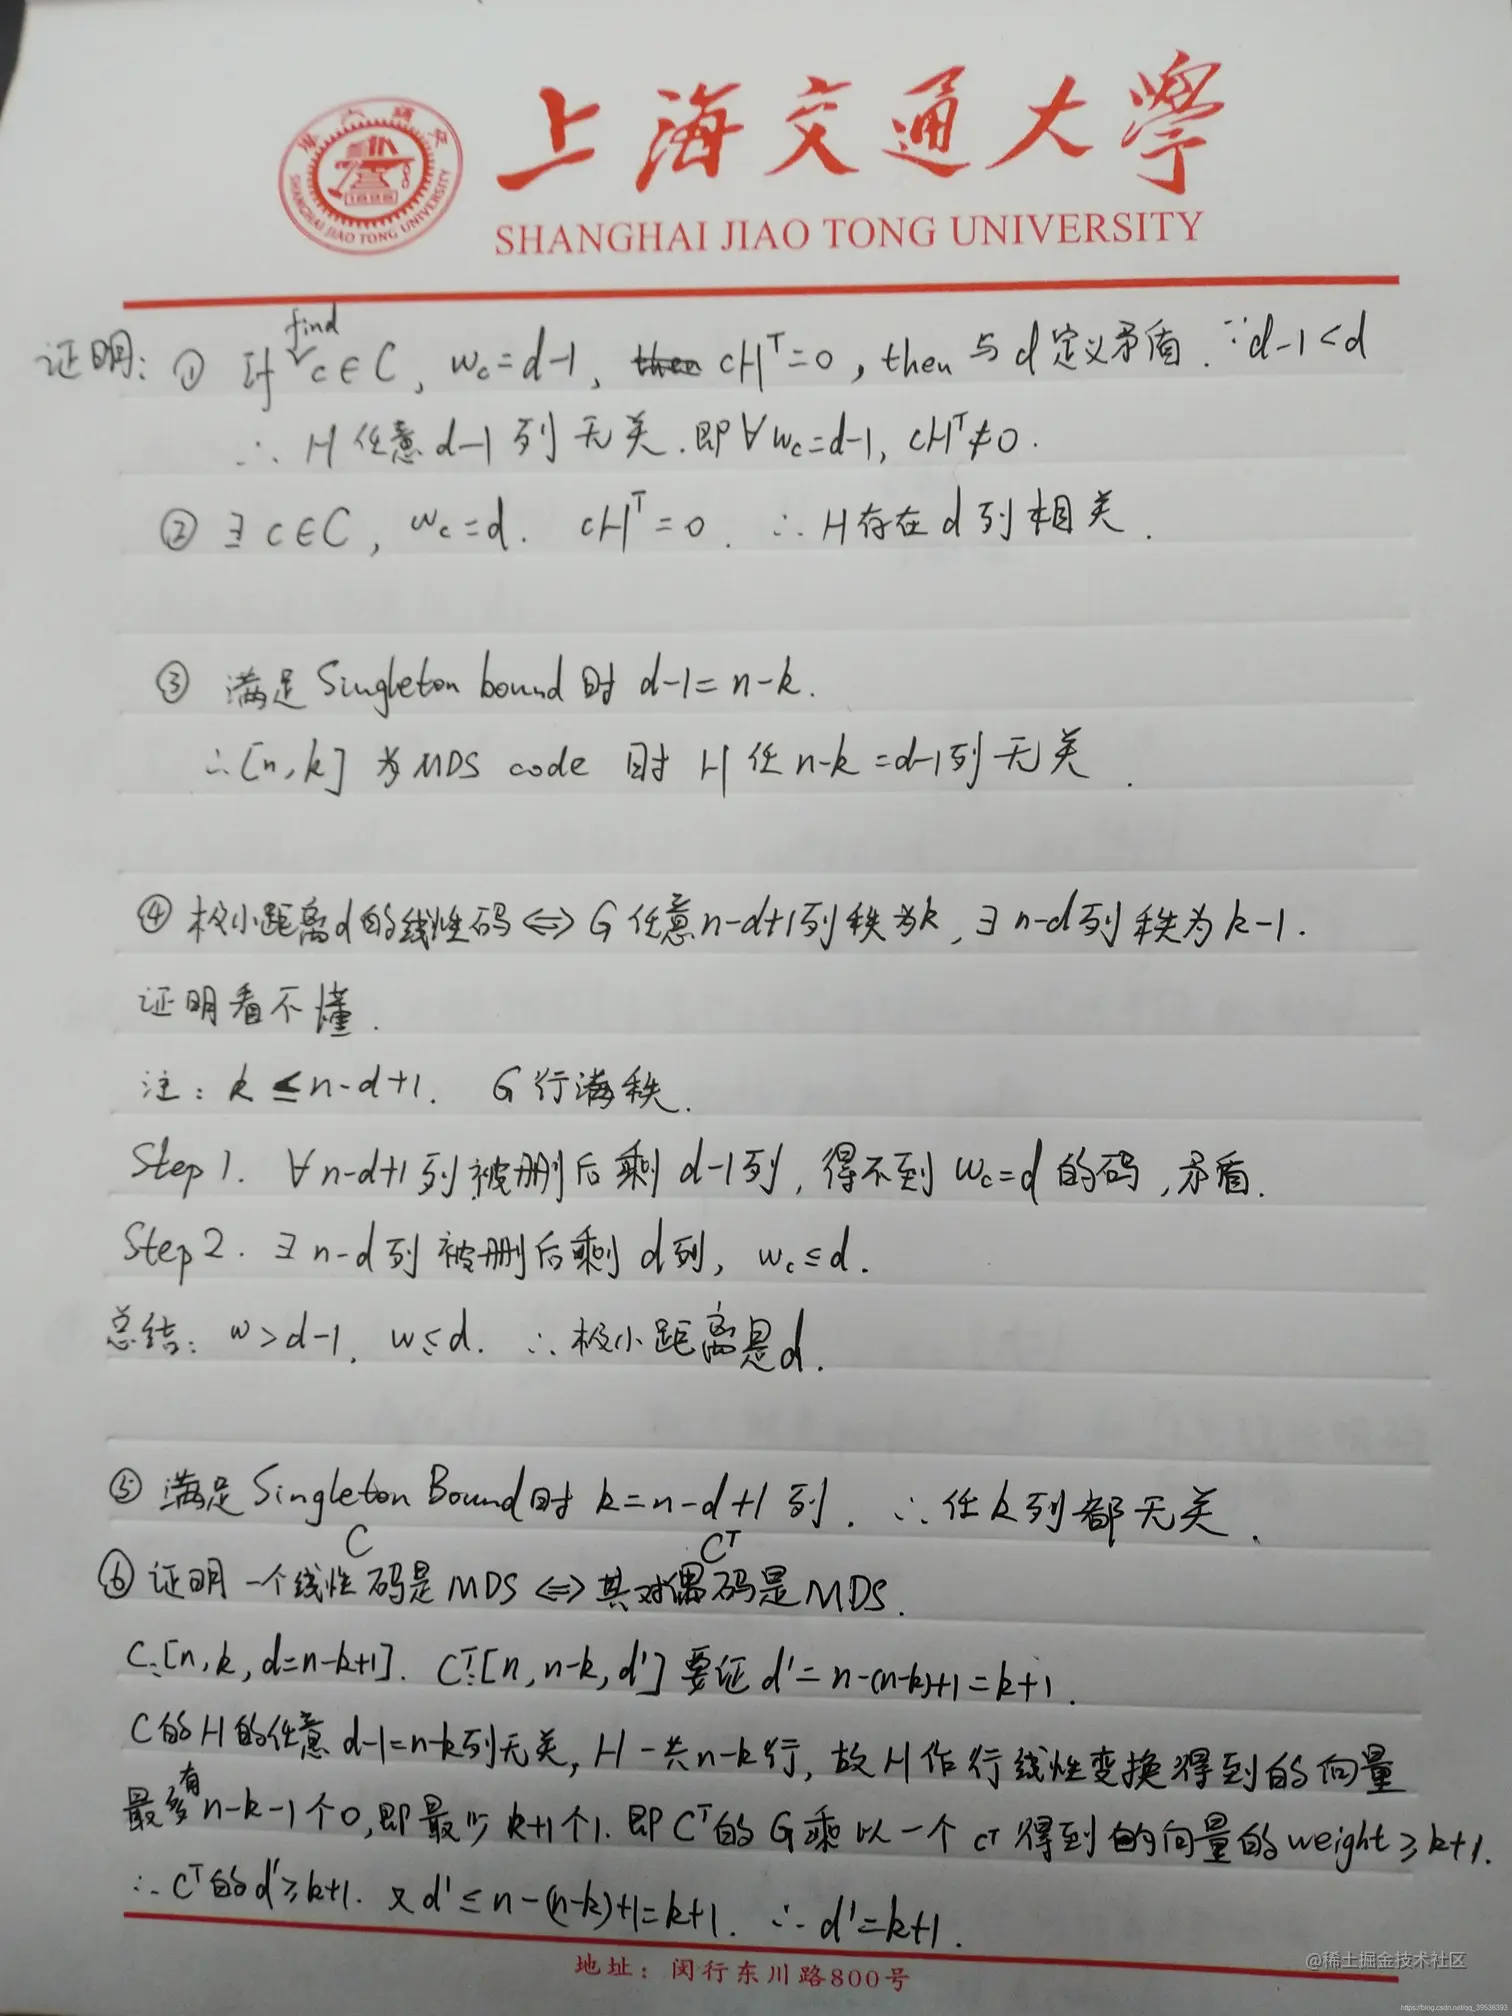 上海交通大學
SHANGHAI JIAO TONG UNIVERSITY
SHANGHAI JIAO TONG UNIVERSITY
1896
find
证明: ① If c∈C, w_c=d-1, then cH^T=0, then 与d定义矛盾. ∵d-1<d
∴ H 任意 d-1 列 无关. 即∀w_c=d-1, cH^T≠0.
② ∃ c∈C, w_c=d. cH^T=0. ∴ H存在d列相关.
③ 满足Singleton bound时 d-1=n-k.
∴[n,k] 为MDS code 时 H 任 n-k=d-1列无关.
④ 极小距离d的线性码⇔G任意n-d+1列秩为k, ∃ n-d列秩为k-1.
证明看不懂.
注: k≤n-d+1. G行满秩.
Step 1. ∀ n-d+1列被删后剩 d-1列, 得不到 w_c=d 的码, 矛盾.
Step 2. ∃ n-d列被删后剩 d列, w_c≤d.
总结: w>d-1, w≤d. ∴极小距离是d.
⑤ 满足Singleton Bound时 k=n-d+1列. ∴任k列都无关.
C C^T
⑥ 证明一个线性码是MDS⇔其对偶码是MDS.
C:[n,k,d=n-k+1]. C^T:[n,n-k,d'] 要证d'=n-(n-k)+1=k+1.
C的H的任意d-1=n-k列无关, H一共n-k行, 故H作行线性变换得到的向量
最多有n-k-1个0,即最少k+1个1. 即C^T的G乘以一个c^T得到的向量的weight≥k+1.
∴C^T的d'≥k+1. 又d'≤n-(n-k)+1=k+1. ∴d'=k+1.
地址: 闵行东川路800号
@稀土掘金技术社区